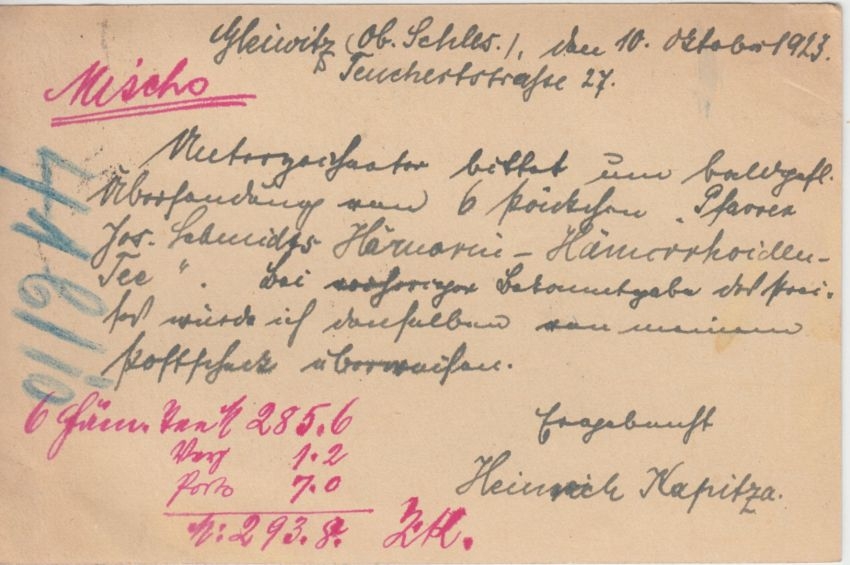 Gleiwitz (Ob. Schles.), den 10. Oktober 1923.
Teuchertstrasse 27.
Mischo
Unterzeichneter bittet um baldgefl.
Übersendung von 6 Päckchen „Pfarrer
Jos. Schmidts Hämorin - Hämorrhoiden-
Tee“. Bei vorheriger Bekanntgabe des Prei-
ses würde ich denselben von meinem
Postscheck überweisen.
Ergebenst
Heinrich Kapitza.
6 Häm. Tee M 285.6
Verp 1.2
Porto 7.0
M: 293.8.